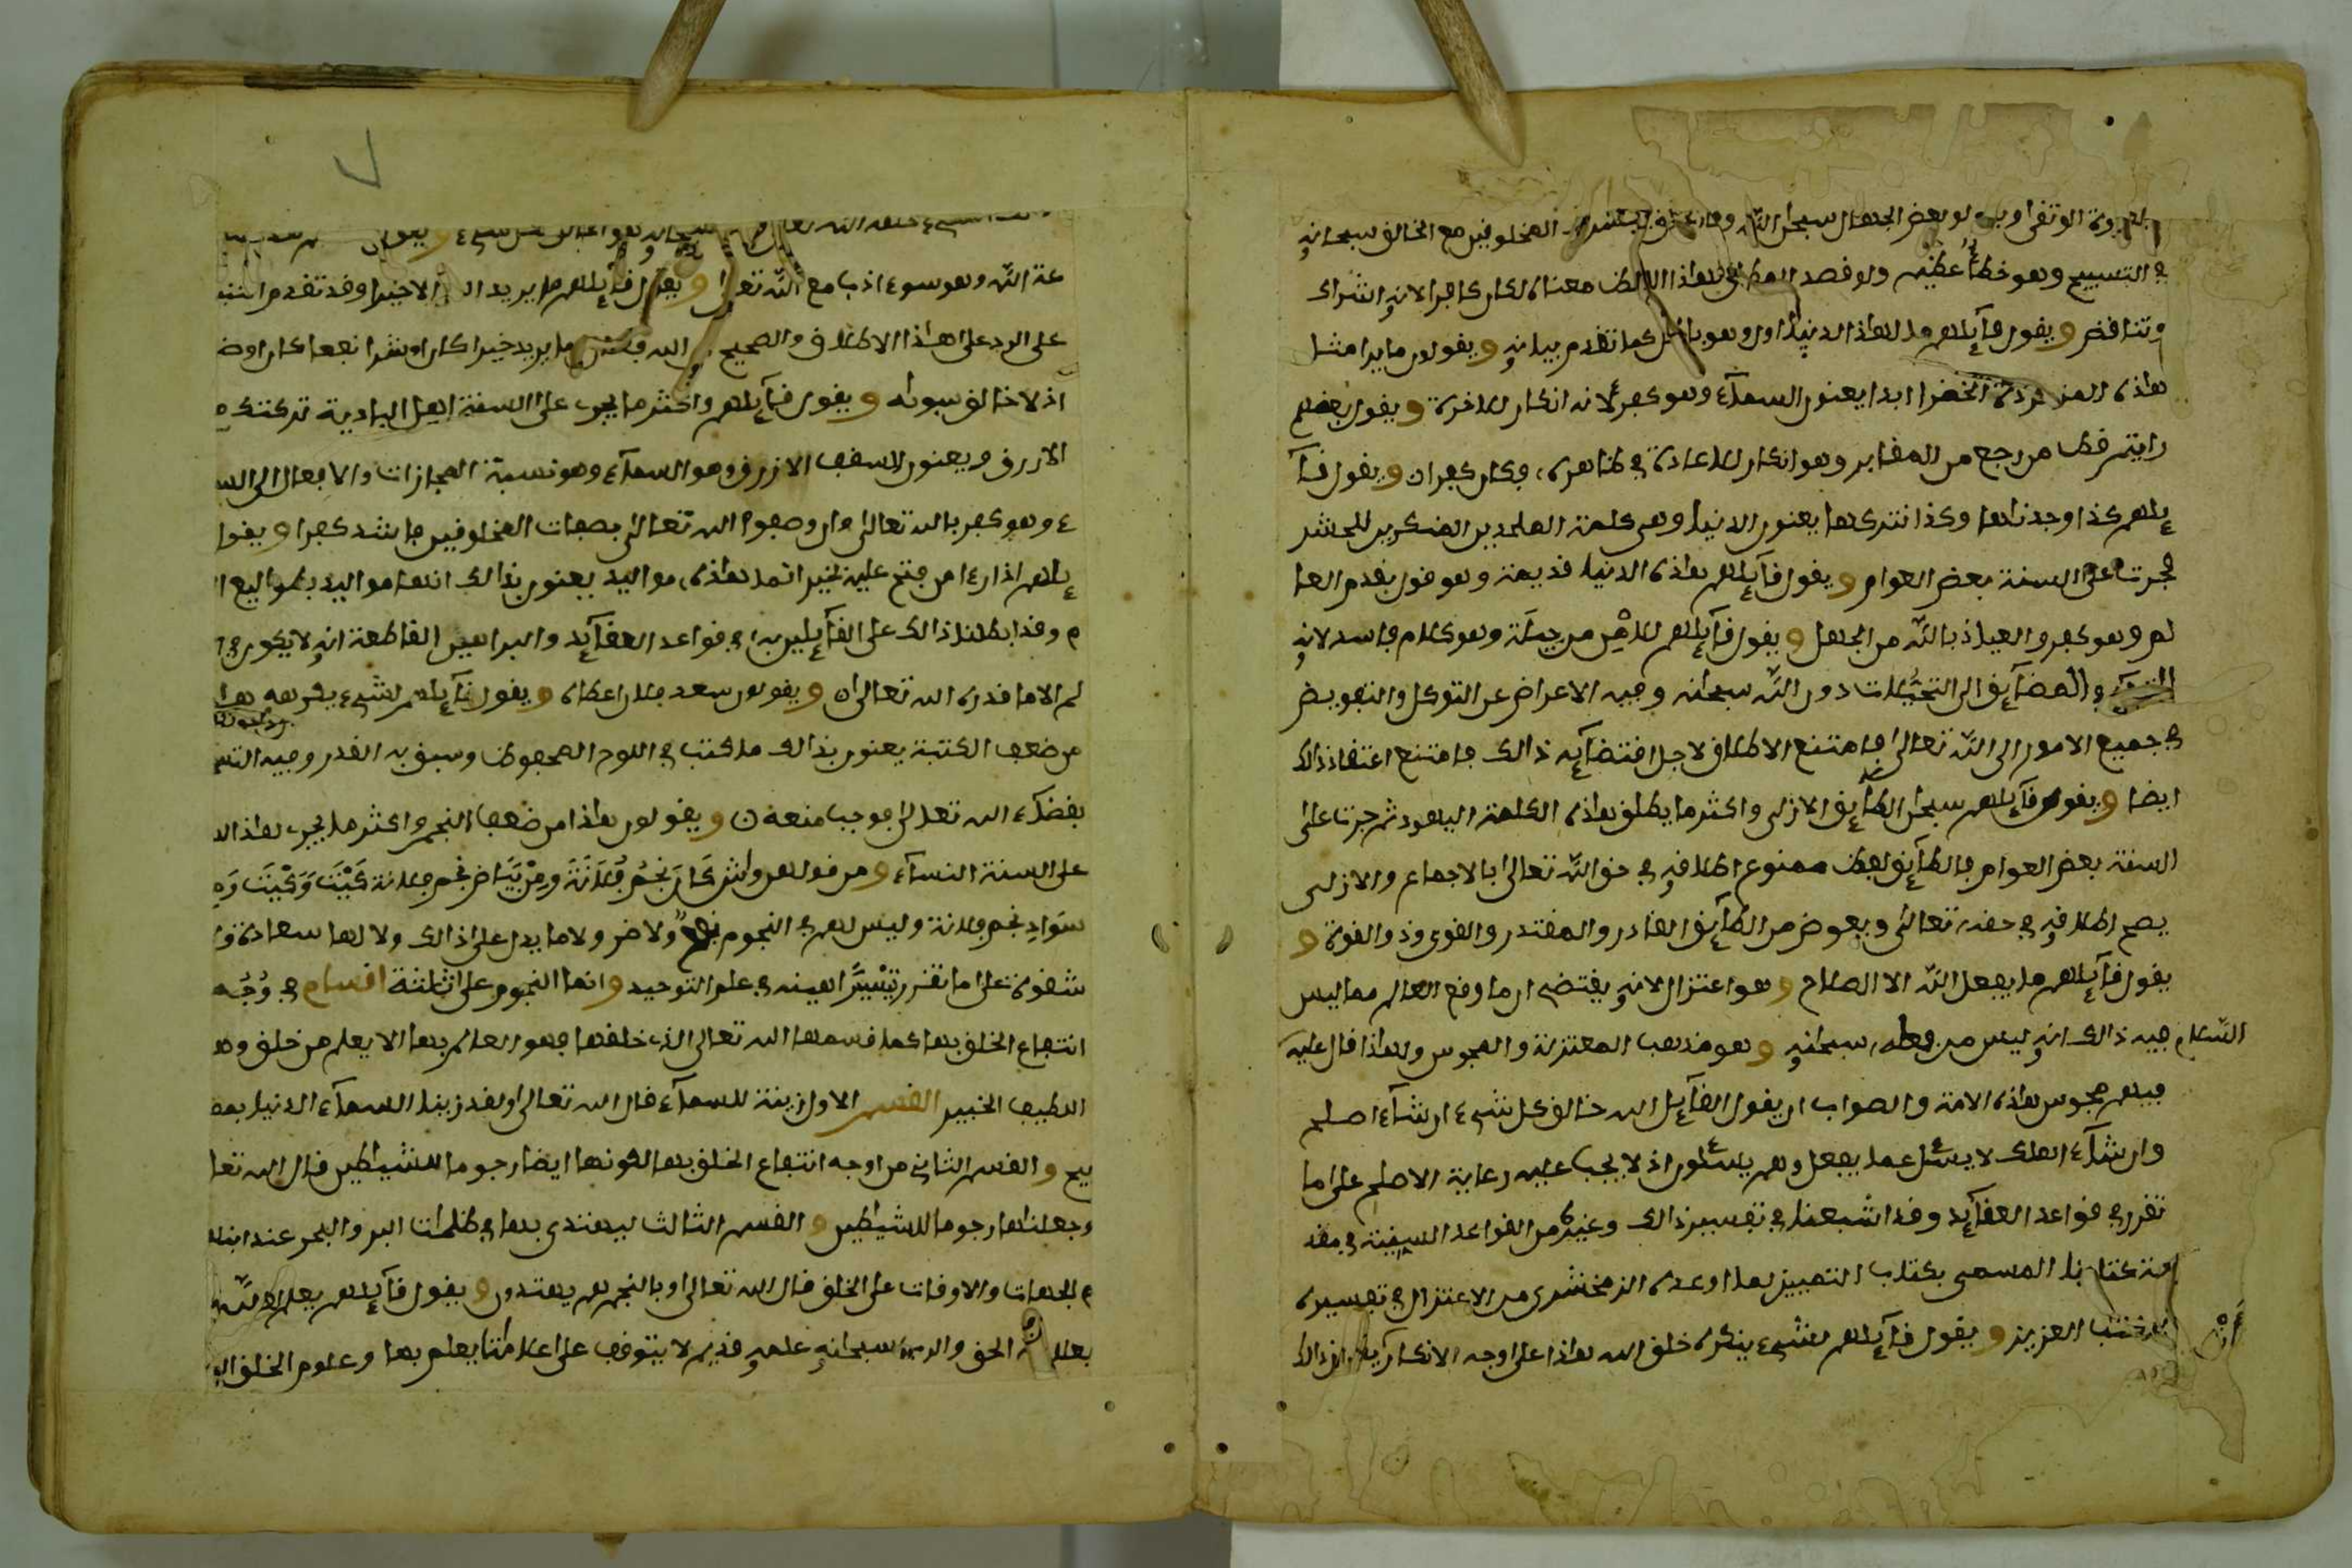 في التسبيح وهو خطأ عظيم ولو قصد المطلق بهذا اللفظ معناه لكان كافرا لانه اشراك
وتناقض ويقول قآئلهم ما لهذا الدنيا اول وهو باطل كما تقدم بيانه ويقولون ما يرا مثل
هذه المزدردة الخضرا ابدا يعنون السمآء وهو كفر لانه انكار للاخرة ويقول بعضهم
رايتم قط من رجع من المقابر وهو انكار للاعادة في ظاهره، فكان كفران ويقول قآ
ئلهم كذا وجدناها وكذا نتركها يعنون الدنيا وهي كلمة الملحدين المنكرين للحشر
فجرت على السنة بعض العوام ويقول قآئلهم هذه الدنيا قديمة وهو قول بقدم العا
لم وهو كفر والعياذ بالله من الجهل ويقول قآئلهم للاهر من حيلة وهو كلام فاسد لانه
والمضآئق الى التحيلات دون الله سبحانه وفيه الاعراض عن التوكل والتفويض
في جميع الامور الى الله تعالى فامتنع الاطلاق لاجل اقتضآئه ذالك فامتنع اعتقاد ذالك
ايضا ويقول قآئلهم سبحان الطآئق الازلى واكثر ما يطلق هذه الكلمة اليهود ثم جرت على
السنة بعض العوام فالطآئق لفظ ممنوع اطلاقه في حق الله تعالى بالاجماع والازلى
يصح اطلاقه في حقه تعالى ويعوض من الطآئق القادر والمقتدر والقوى وذو القوة و
يقول قآئلهم ما يفعل الله الا الصلاح وهو اعتزال لانه يقتضى ان ما وقع العالم مما ليس
فيه ذالك انه ليس من فعله، سبحانه وهو مذهب المعتزلة والمجوس ولهذا قال عليه السلام
فيهم مجوس هذه الامة والصواب ان يقول القآئل الله خالق كل شىء ان شآء اصلح
وان شآء اهلك لا يسئل عما يفعل وهم يسئلون اذ لا يجب عليه رعاية الاصلح على ما
تقرر في قواعد العقآئد وقد اشبعنا في تفسير ذالك وغيره من القواعد السنية في مقد
مة كتابنا المسمى بكتاب التمييز لما اودعه الزمخشرى من الاعتزال في تفسيره
للكتب العزيز ويقول قآئلهم لشىء ينكره خلق الله هذا على وجه الانكار
عة الله وهو سوء ادب مع الله تعالى ويقول قآئلهم ما يريد الله الا خيرا وقد تقدم التنبيه
على الرد على هذا الاطلاق والصحيح ان الله ما يريد خيرا كان او شرا نفعا كان او ض
اذ لا خالق سواه ويقول قآئلهم واكثر ما يجرى على السنة اهل البادية تركتك ه
الازرق ويعنون السقف الازرق وهو السمآء وهو نسبة المجازات والافعال الى الس
ء وهو كفر بالله تعالى وان وصفوا الله تعالى بصفات المخلوفين فاشد كفرا ويقول
ئلهم اذا رءا من فتح عليه بخير انما هذه، مواليد يعنون بذالك انها مواليد بطواليع ا
م وقد ابطلنا ذالك على القآئلين به في قواعد العقآئد والبراهين القاطعة انه لا يكون في ا
لم الا ما قدره الله تعالى ان ويقولون سعد فلان اعطاه ويقول قآئلهم لشىء يكرهه هذا
من ضعف الكتبة يعنون بذالك ما كتب في اللوح المحفوظ وسبق به القدر وفيه التس
بقضآء الله تعالى فوجب منعه ن ويقولون هذا من ضعف النجم واكثر ما يجرى هذا الا
على السنة النسآء ومن قولهم واش كان نجم فلانة ومن بياض نجم فلانة كيت وكيت وه
سواد نجم فلانة وليس لهم في النجوم نفع ولا ضر ولا ما يدل على ذالك ولا لها سعادة ولا
شقوة على ما تقرر تبيين براهينه في علم التوحيد وانما النجوم على ثلثة اقسام في وجه
انتفاع الخلق بها كما قسمها الله تعالى الذى خلقها فهو العالم بها الا يعلم من خلق وهو
اللطيف الخبير القسم الاول زينة للسمآء قال الله تعالى ولقد زينا السمآء الدنيا بمصا
بيح والقسم الثانى من اوجه انتفاع الخلق بها لكونها ايضا رجوما للشيطين قال الله تعا
وجعلناها رجوما للشيطين والقسم الثالث ليهتدى بها في ظلمات البر والبحر عند ابتلا
م الجهات والاوقات على الخلق قال الله تعالى وبالنجم هم يهتدون ويقول قآئلهم يعلم الله
الحق والله سبحانه علمه قديم لا يتوقف على علامتنا يعلم بها وعلوم الخلق